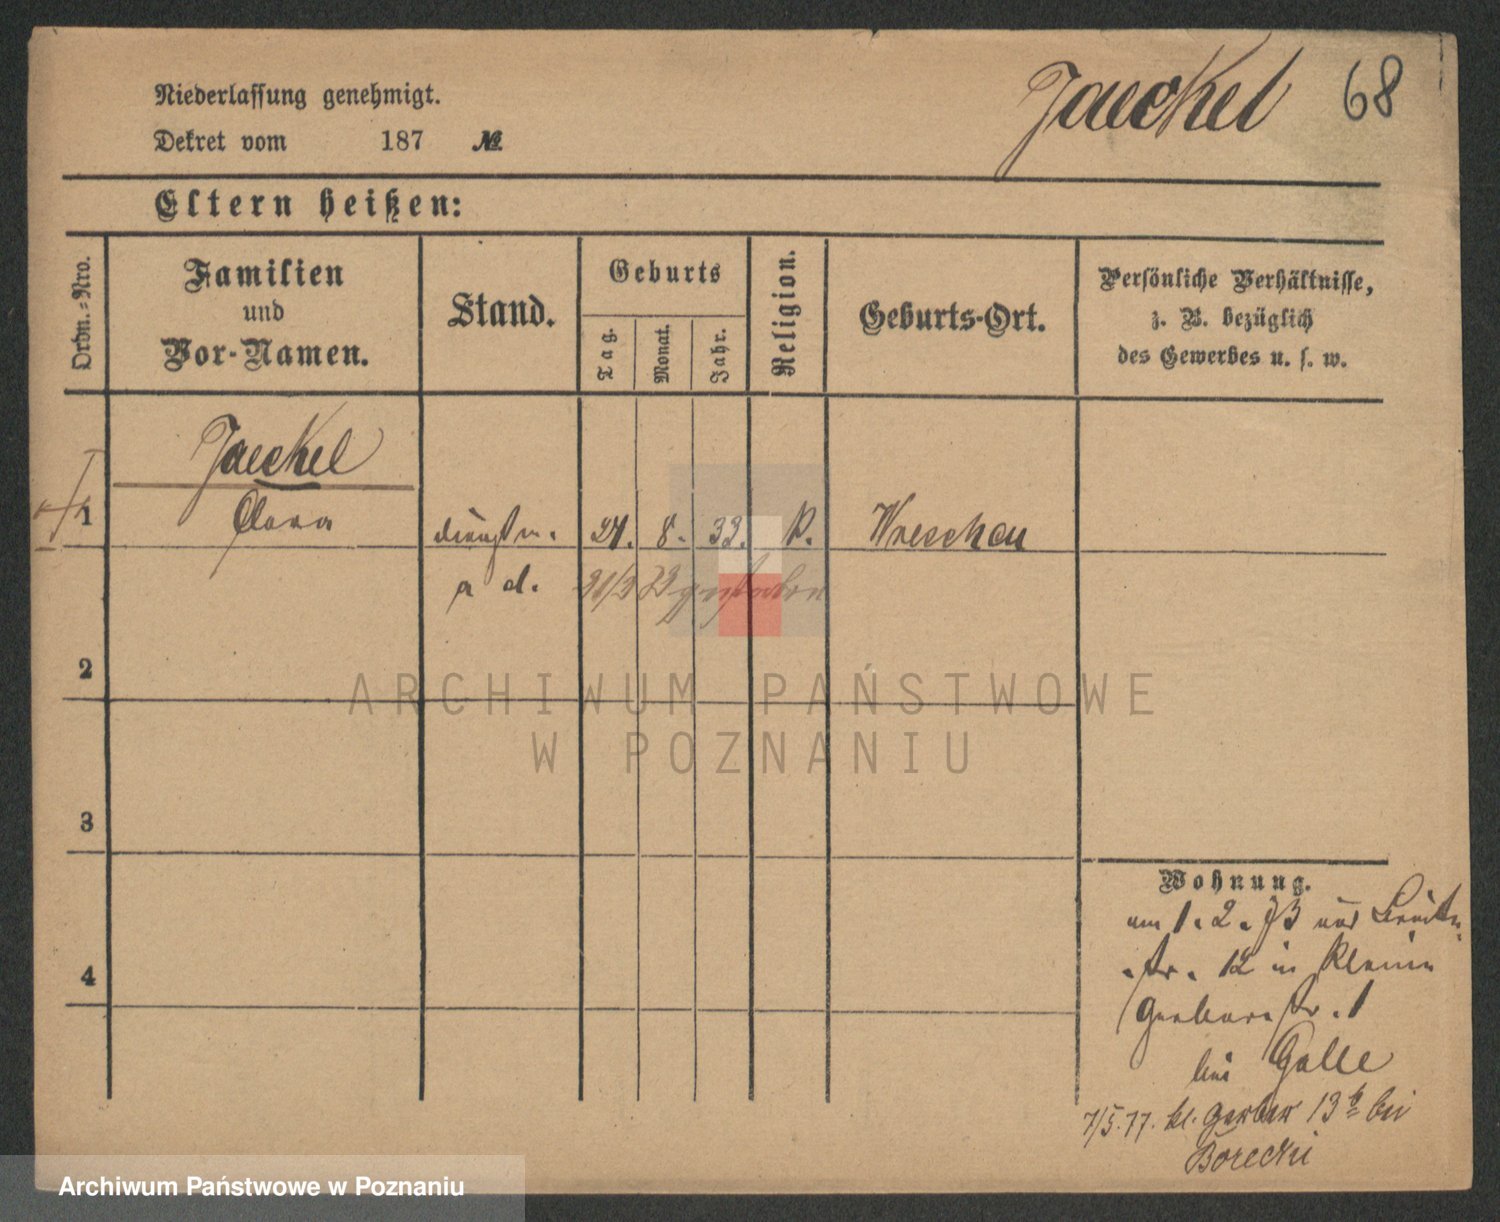 Jaeckel 68
Niederlassung genehmigt.
Dekret vom 187 №
Eltern heißen:
Ordn.-Nro.
Familien
und
Vor-Namen.
Stand.
Geburts
Tag.
Monat.
Jahr.
Religion.
Geburts-Ort.
Persönliche Verhältnisse,
z. B. bezüglich
des Gewerbes u. s. w.
Jaeckel
1 Clara dienstm. 24. 8. 33. K. Wreschen
a d.
gestorben
2
3
4
Wohnung.
am 1. 2. 73 von
str. 12 in Kleine
Gerberstr. 1
bei Galle
7/5. 77. kl. Gerber 13 b bei
Borecki
ARCHIWUM PAŃSTWOWE
W POZNANIU
Archiwum Państwowe w Poznaniu